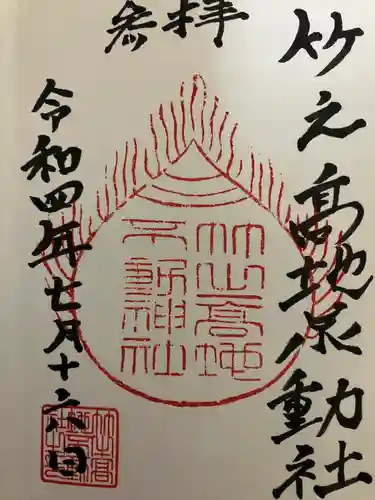 参拝
竹之髙地不動社
竹之高地
不動神社
令和四年七月十六日